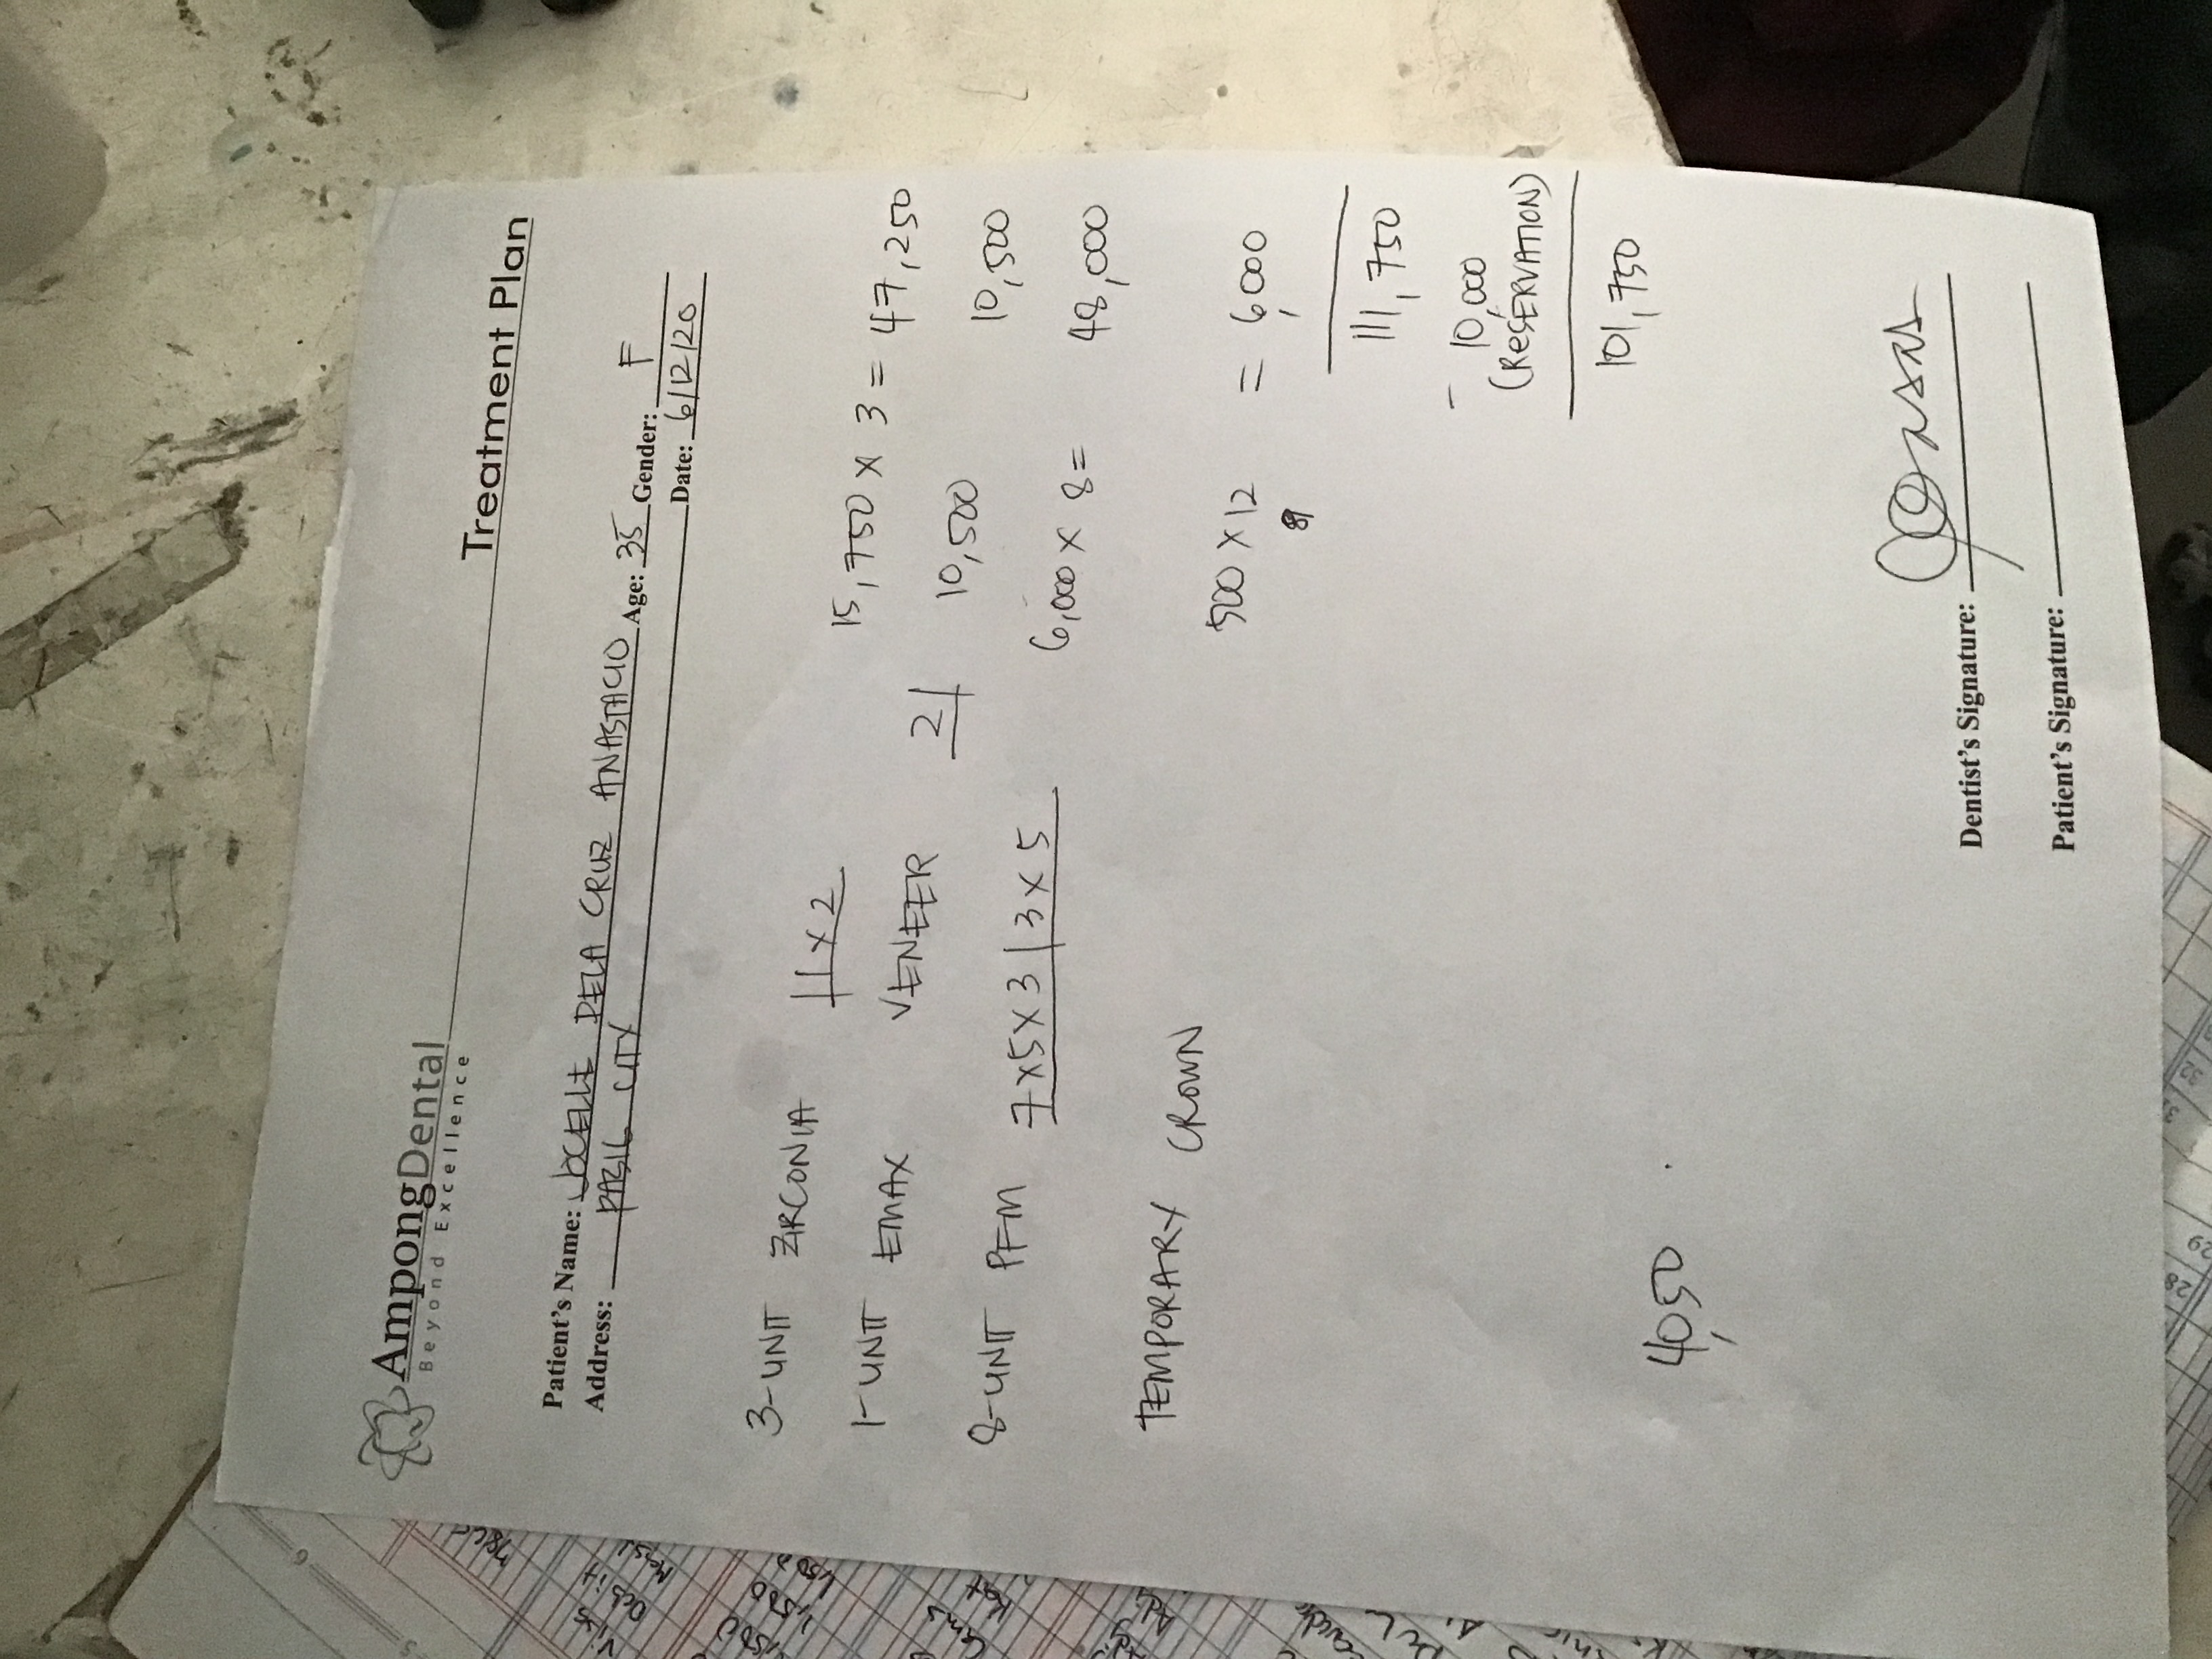 AmpongDental
Beyond Excellence
Treatment Plan
Patient's Name: JOCELLE DELA CRUZ ANASTACIO Age: 35 Gender: F
Address: PASIG CITY Date: 6/12/20
3-UNIT ZIRCONIA 1 x 2 15,750 x 3 = 47,250
1-UNIT EMAX VENEER 2 10,500 10,500
8-UNIT PFM 7x5x3|3x5 6,000 x 8 = 48,000
TEMPORARY CROWN 500 x 12 = 6,000
111,750
- 10,000
(RESERVATION)
101,750
40,50
Dentist's Signature:
Patient's Signature: